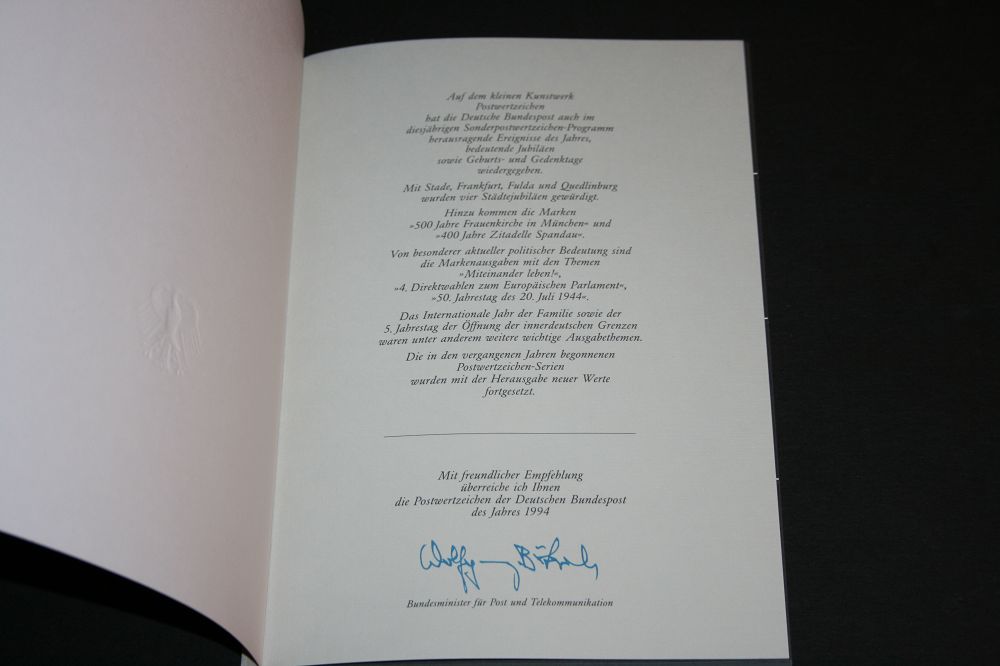 Auf dem kleinen Kunstwerk
Postwertzeichen
hat die Deutsche Bundespost auch im
diesjährigen Sonderpostwertzeichen-Programm
herausragende Ereignisse des Jahres,
bedeutende Jubiläen
sowie Geburts- und Gedenktage
wiedergegeben.
Mit Stade, Frankfurt, Fulda und Quedlinburg
wurden vier Städtejubiläen gewürdigt.
Hinzu kommen die Marken
»500 Jahre Frauenkirche in München« und
»400 Jahre Zitadelle Spandau«.
Von besonderer aktueller politischer Bedeutung sind
die Markenausgaben mit den Themen
»Miteinander leben!«,
»4. Direktwahlen zum Europäischen Parlament«,
»50. Jahrestag des 20. Juli 1944«.
Das Internationale Jahr der Familie sowie der
5. Jahrestag der Öffnung der innerdeutschen Grenzen
waren unter anderem weitere wichtige Ausgabethemen.
Die in den vergangenen Jahren begonnenen
Postwertzeichen-Serien
wurden mit der Herausgabe neuer Werte
fortgesetzt.
Mit freundlicher Empfehlung
überreiche ich Ihnen
die Postwertzeichen der Deutschen Bundespost
des Jahres 1994
Wolfgang Bötsch
Bundesminister für Post und Telekommunikation